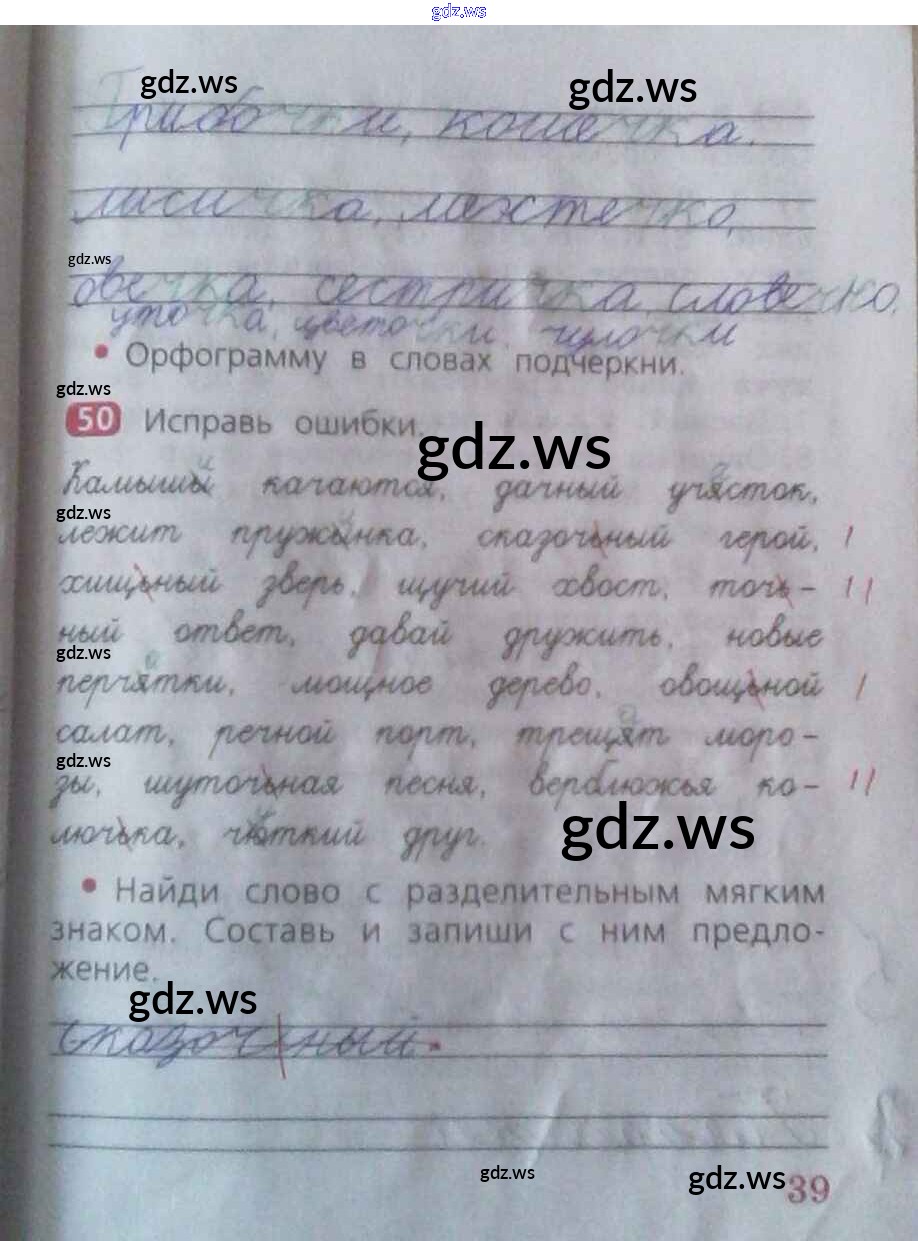 gdz.ws
gdz.ws gdz.ws
Грибочки, кошечка,
лисичка, местечко,
gdz.ws
овечка, сестричка, словечко,
уточка, цветочки, чулочки
• Орфограмму в словах подчеркни.
gdz.ws
50 Исправь ошибки.
gdz.ws
Камышы качаются, дачный участок,
gdz.ws
лежит пружынка, сказочьный герой,
хищьный зверь, щучий хвост, точь-
ный ответ, давай дружить, новые
gdz.ws
перчятки, мощное дерево, овощьной
салат, речной порт, трещят моро-
gdz.ws
зы, шуточьная песня, верблюжья ко-
gdz.ws
лючька, чюткий друг.
• Найди слово с разделительным мягким
знаком. Составь и запиши с ним предло-
жение.
gdz.ws
Сказочный
gdz.ws
gdz.ws
39